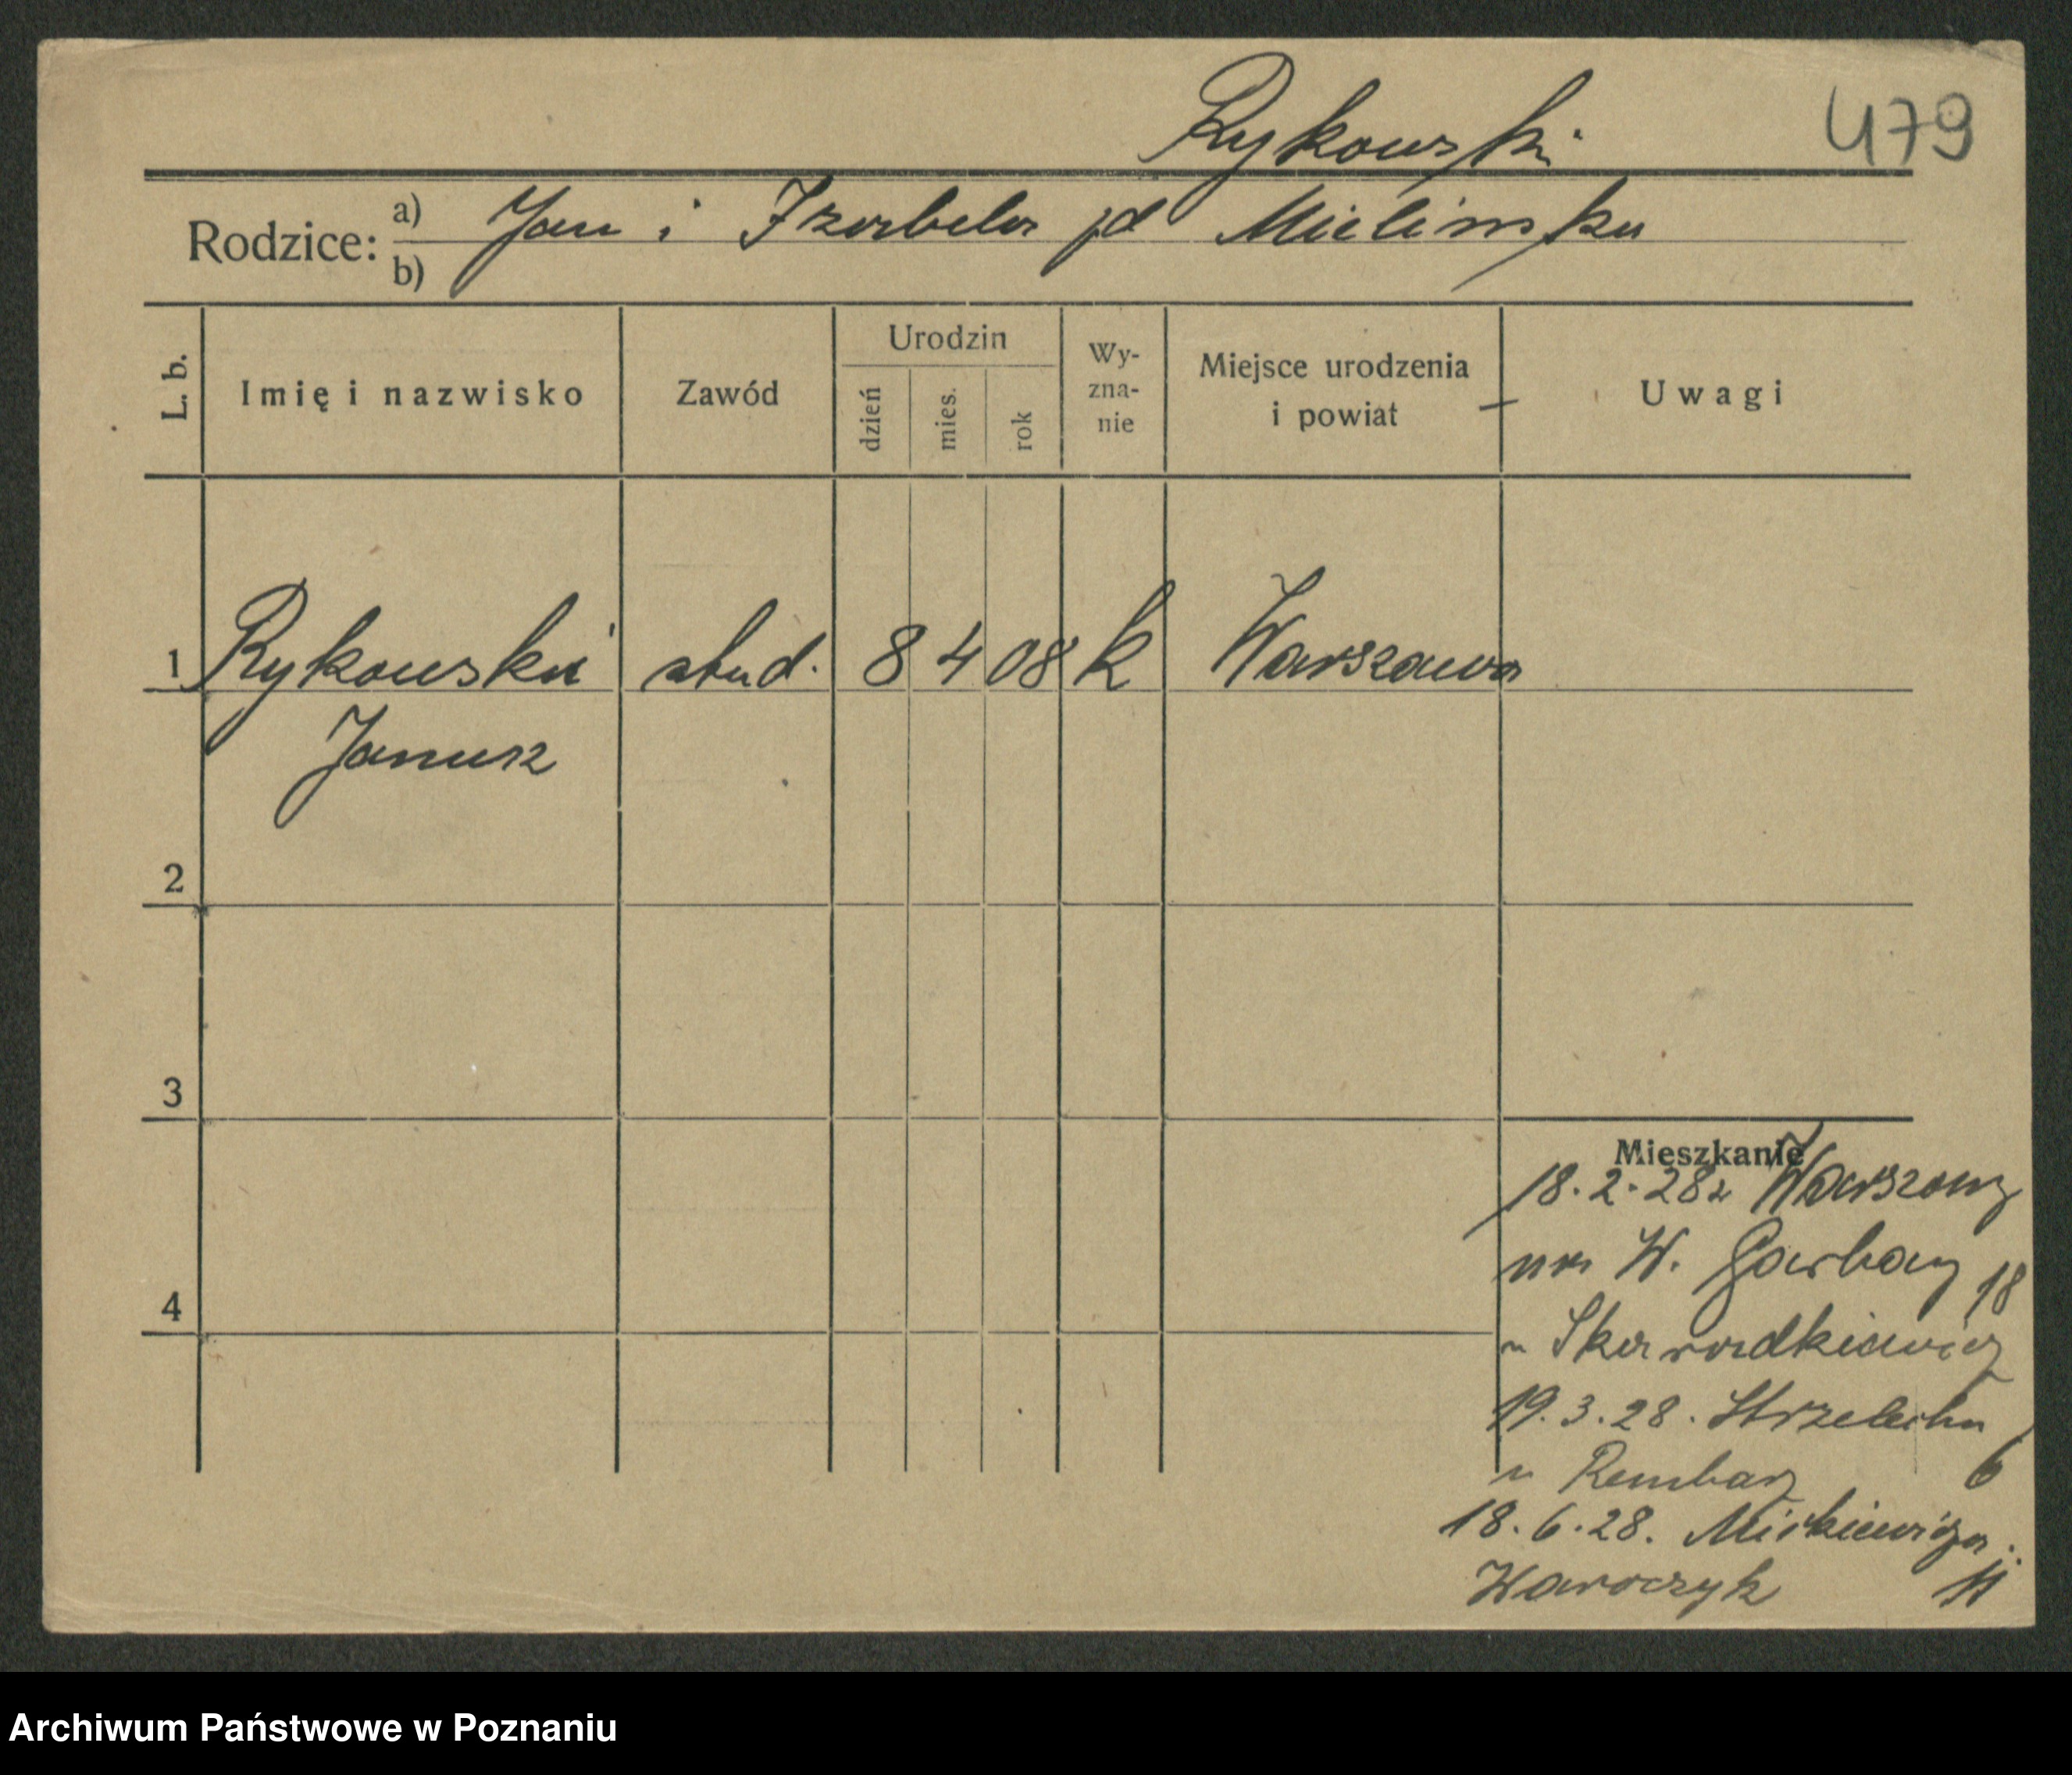 Rykowski
479
Rodzice: a) Jan i Izabela zd Mielinska
b)
L. b.
Imię i nazwisko
Zawód
Urodzin
dzień
mies.
rok
Wy-
zna-
nie
Miejsce urodzenia
i powiat
Uwagi
1 Rykowski stud. 8 4 08 k Warszawa
Janusz
2
3
4
Mieszkanie
18.2.28 z Warszawy
na W. Garbary 18
19.3.28. Strzelecka
6
u Rembacz
18.6.28. Mickiewicza
Wawrzyk 11
Archiwum Państwowe w Poznaniu